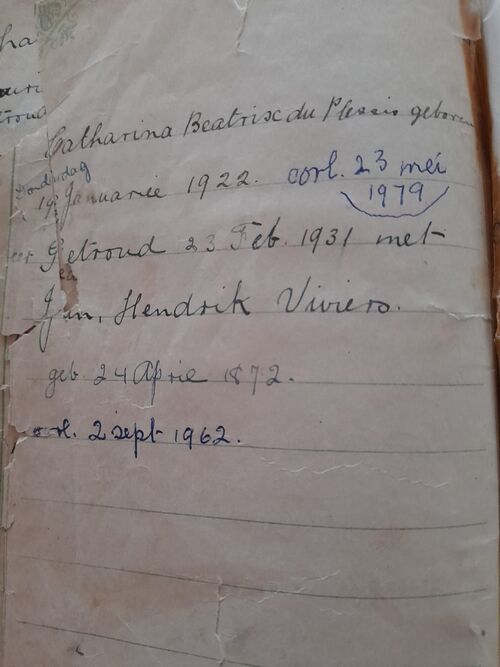 Catharina Beatrix du Plessis geboren
Donderdag
19 Januarie 1922. oorl. 23 mei
1979
Getroud 23 Feb. 1931 met
Jan, Hendrik Viviers.
geb 24 Aprie 1872.
oorl. 2 sept 1962.